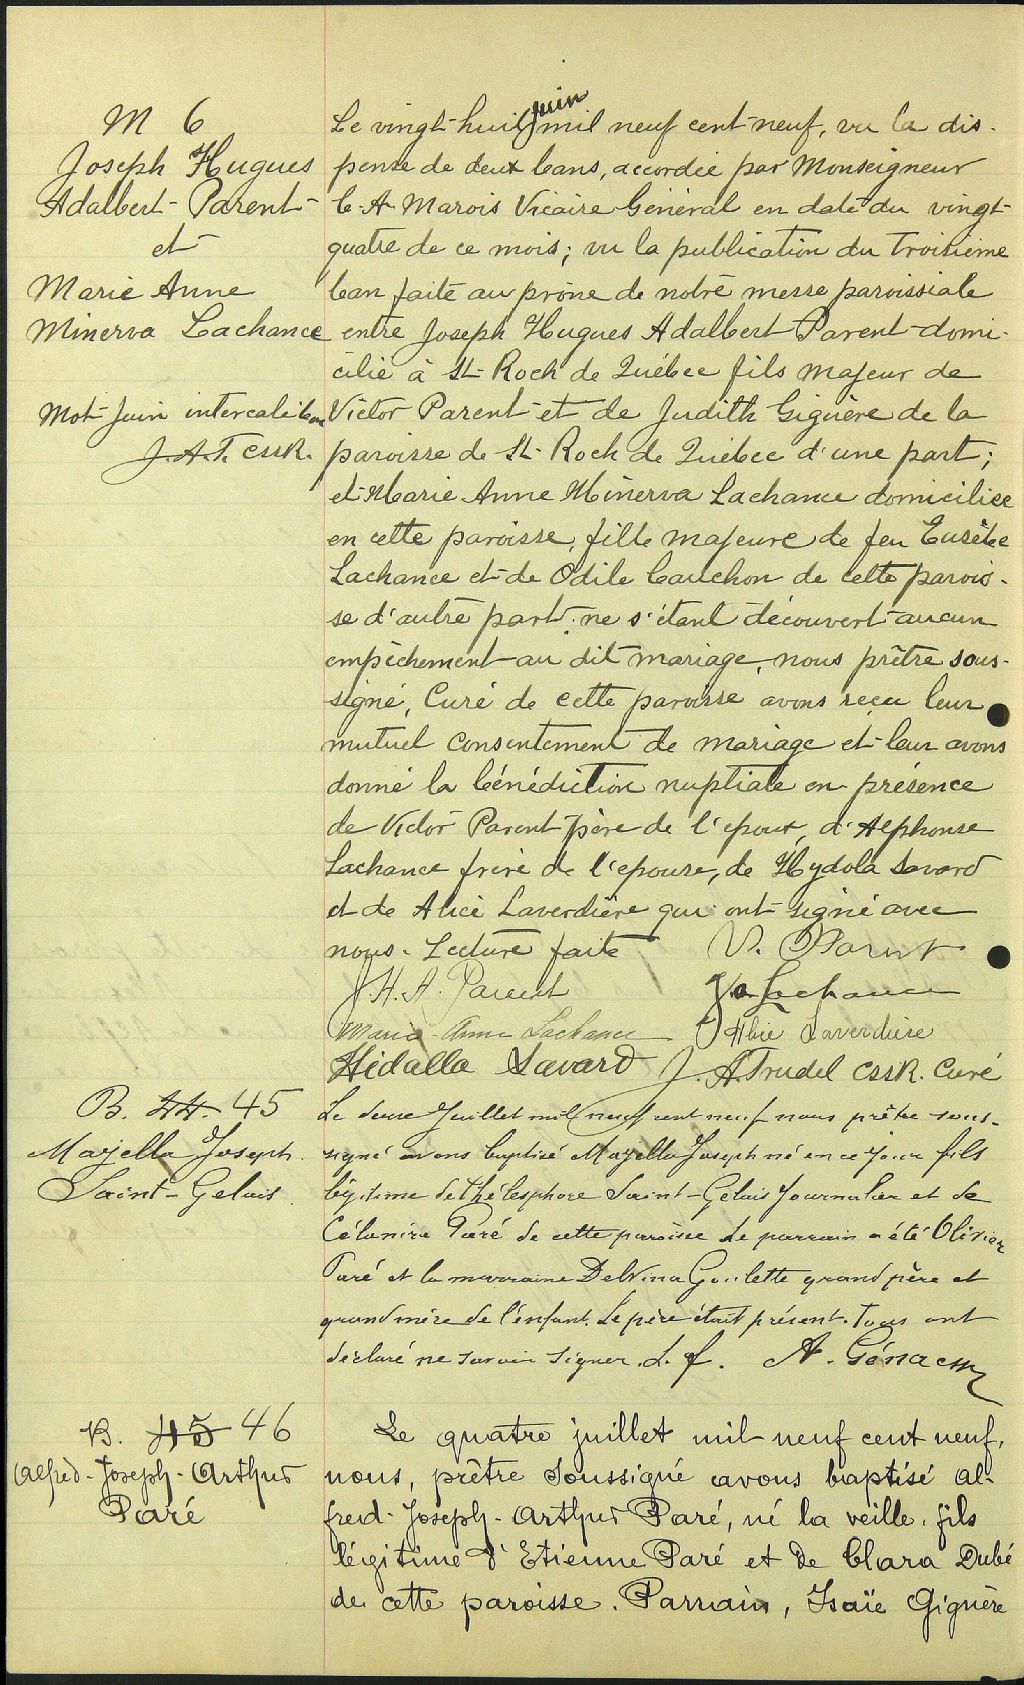 M 6
Joseph Hugues
Adalbert Parent
et
Marie Anne
Minerva Lachance
Mot juin intercalé bon
J.A.T. CSSR.
Le vingt-huit juin mil neuf cent neuf, vu la dis-
pense de deux bans, accordée par Monseigneur
C. A. Marois Vicaire Général en date du vingt-
quatre de ce mois; vu la publication du troisième
ban faite au prône de notre messe paroissiale
entre Joseph Hugues Adalbert Parent domi-
cilié à St-Roch de Québec fils majeur de
Victor Parent et de Judith Giguère de la
paroisse de St-Roch de Québec d'une part;
et Marie Anne Minerva Lachance domiciliée
en cette paroisse, fille majeure de feu Eusèbe
Lachance et de Odile Cauchon de cette parois-
se d'autre part; ne s'étant découvert aucun
empêchement au dit mariage, nous prêtre sous-
signé, Curé de cette paroisse avons reçu leur
mutuel consentement de mariage et leur avons
donné la bénédiction nuptiale en présence
de Victor Parent père de l'époux, d'Alphonse
Lachance frère de l'épouse, de Hydola Savard
et de Alice Laverdière qui ont signé avec
nous. Lecture faite V. Parent
J. H. A. Parent Lachance
Marie-Anne Lachance Laverdière
Hidalla Savard J. A. Trudel CSSR. Curé
B. 44 45
Majella Joseph
Saint-Gelais
Le deux Juillet mil neuf cent neuf nous prêtre sous-
signé avons baptisé Majella Joseph né en ce jour fils
légitime de Thélesphore Saint-Gelais Journalier et de
Célanire Paré de cette paroisse Le parrain a été Olivier
Paré et la marraine Delvina Goulette grand père et
grand mère de l'enfant. Le père était présent. Tous ont
déclaré ne savoir signer. L. f. A. Géna cssr
B. 45 46
Alfred-Joseph-Arthur
Paré
Le quatre juillet mil neuf cent neuf,
nous, prêtre soussigné avons baptisé Al-
fred-Joseph-Arthur Paré, né la veille, fils
légitime d'Etienne Paré et de Clara Dubé
de cette paroisse. Parrain, Isaïe Giguère